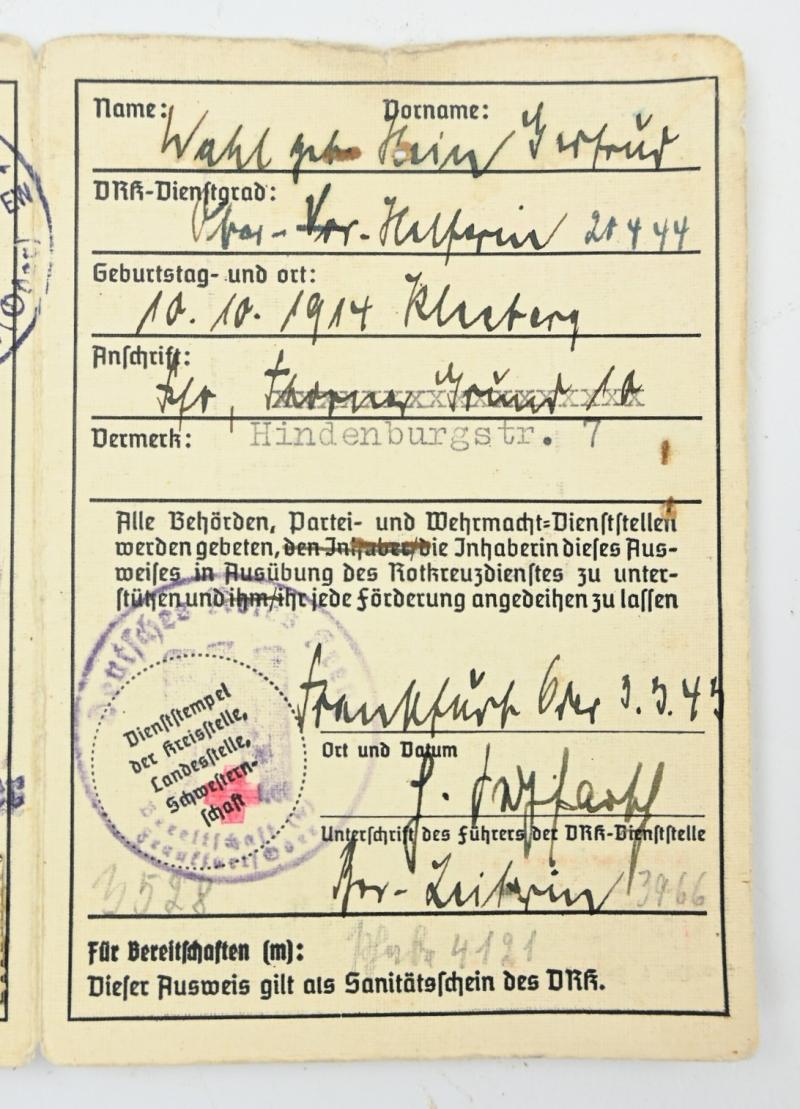 Name: Vorname:
Wahl geb. Hein Gertrud
DRK-Dienstgrad:
Ober-Vor-Helferin 20 4 44
Geburtstag- und ort:
10. 10. 1914
Anschrift:
Ffo, Thorner Grund 10
xxxxxxxxxxxxxxxxxx
Vermerk: Hindenburgstr. 7
Alle Behörden, Partei- und Wehrmacht-Dienststellen
werden gebeten, den Inhaber/die Inhaberin dieses Aus-
weises in Ausübung des Rotkreuzdienstes zu unter-
stützen und ihm/ihr jede Förderung angedeihen zu lassen
Deutsches Rotes Kreuz
Dienststempel
der Kreisstelle,
Landesstelle,
Schwestern-
schaft
Bereitschaft (w)
Frankfurt/Oder
Frankfurt Oder 3. 3. 43
Ort und Datum
Unterschrift des Führers der DRK-Dienststelle
3528
Leiterin 3966
Für Bereitschaften (m): 4121
Dieser Ausweis gilt als Sanitätsschein des DRK.